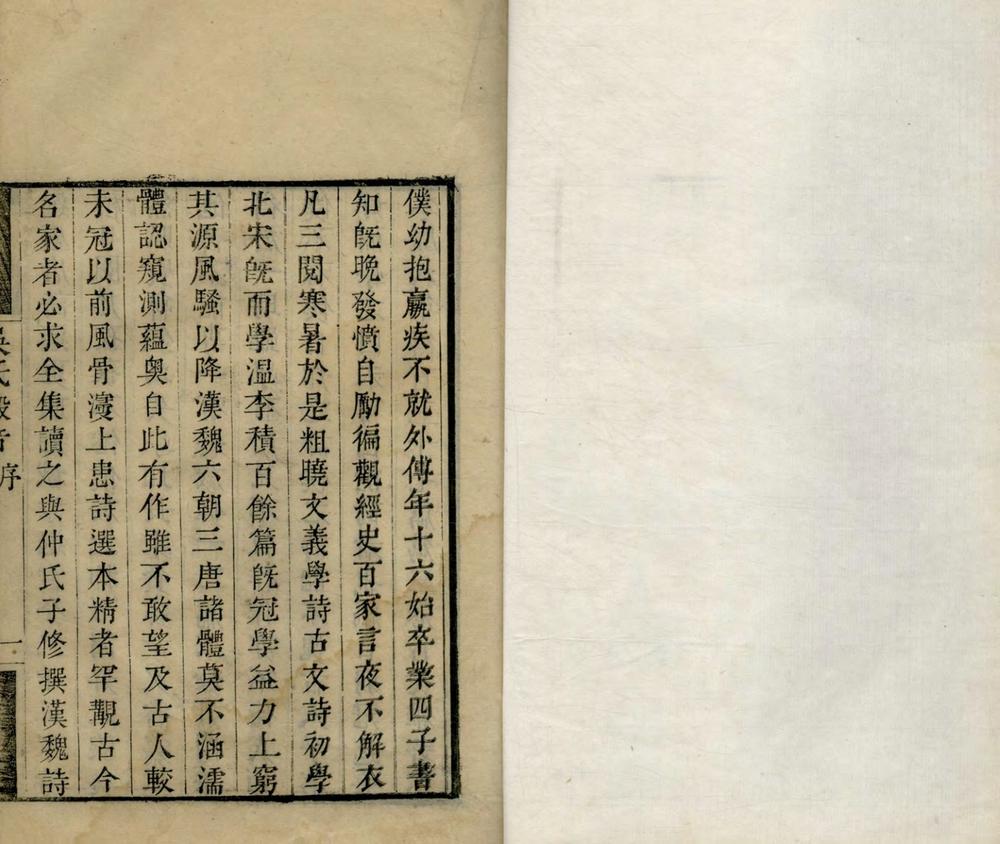 僕幼抱羸疾不就外傅年十六始卒業四子書
知旣晚發憤自勵徧觀經史百家言夜不解衣
凡三閱寒暑於是粗曉文義學詩古文詩初學
北宋旣而學溫李積百餘篇旣冠學益力上窮
其源風騷以降漢魏六朝三唐諸體莫不涵濡
體認窺測蘊奧自此有作雖不敢望及古人較
未冠以前風骨濅上患詩選本精者罕觀古今
名家者必求全集讀之與仲氏子修撰漢魏詩
序
一